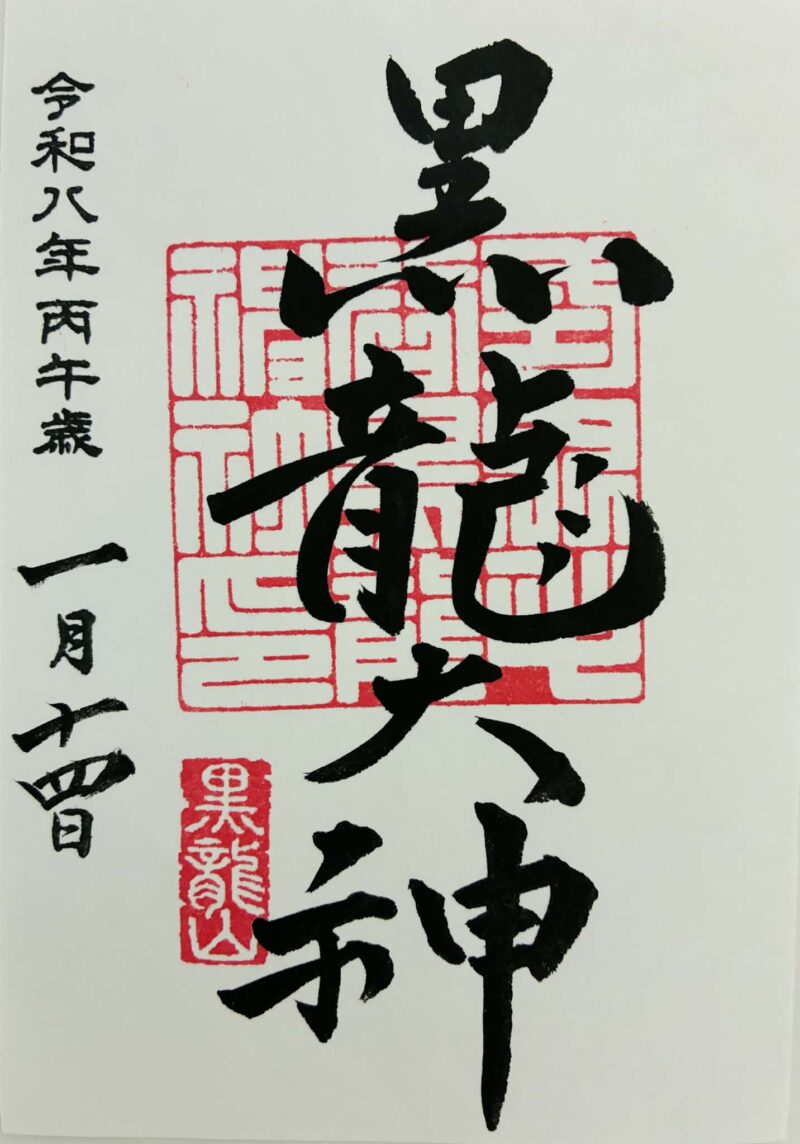 黒龍大神
令和八年丙午歳 一月十四日
黒龍山